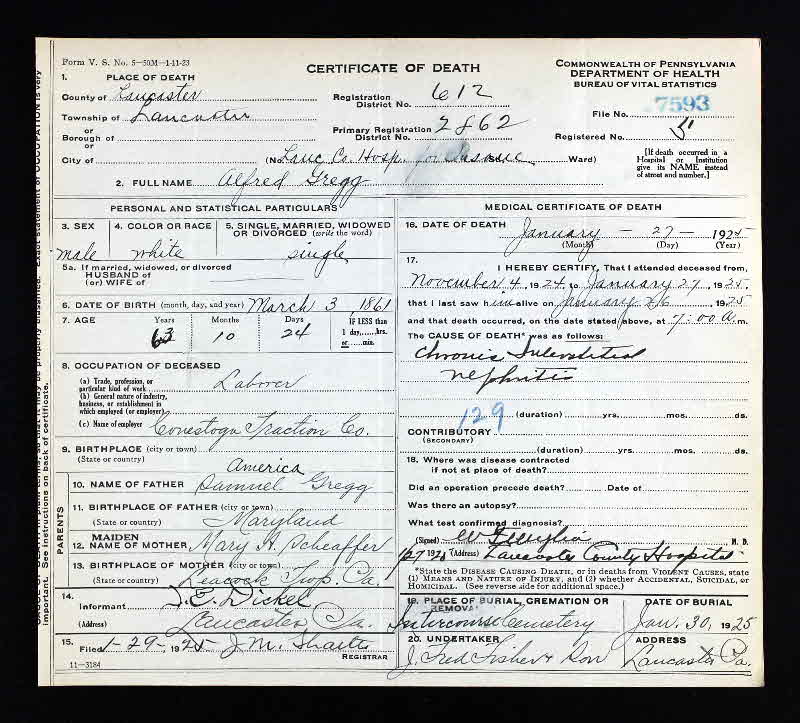 Form V. S. No. 5—50M—1-11-23
CERTIFICATE OF DEATH
COMMONWEALTH OF PENNSYLVANIA
DEPARTMENT OF HEALTH
BUREAU OF VITAL STATISTICS
1. PLACE OF DEATH
County of Lancaster
Registration District No. 612
File No. 7593
Township of Lancaster
or
Borough of
Primary Registration District No. 2862
Registered No. 5
or
City of
(No. Lanc Co. Hosp. for Insane Ward)
[If death occurred in a
Hospital or Institution
give its NAME instead
of street and number.]
2. FULL NAME Alfred Gregg
PERSONAL AND STATISTICAL PARTICULARS
3. SEX
male
4. COLOR OR RACE
white
5. SINGLE, MARRIED, WIDOWED
OR DIVORCED (write the word)
single
5a. If married, widowed, or divorced
HUSBAND of
(or) WIFE of
6. DATE OF BIRTH (month, day, and year) March 3, 1861
7. AGE Years Months Days IF LESS than
63 10 24 1 day,......hrs.
or......min.
8. OCCUPATION OF DECEASED
(a) Trade, profession, or
particular kind of work Laborer
(b) General nature of industry,
business, or establishment in
which employed (or employer)
(c) Name of employer Conestoga Traction Co.
9. BIRTHPLACE (city or town)
(State or country) America
PARENTS
10. NAME OF FATHER Samuel Gregg
11. BIRTHPLACE OF FATHER (city or town)
(State or country) Maryland
12. MAIDEN NAME OF MOTHER Mary A. Scheaffer
13. BIRTHPLACE OF MOTHER (city or town)
(State or country) Leacock Twp. Pa.
14.
Informant J. E. Dickel
(Address) Lancaster, Pa.
15.
Filed 1-29-, 1925 J. M.
REGISTRAR
11—3184
MEDICAL CERTIFICATE OF DEATH
16. DATE OF DEATH January - 27 - 1925
(Month) (Day) (Year)
17.
I HEREBY CERTIFY, That I attended deceased from,
November 4, 1924, to January 27, 1925,
that I last saw him alive on January 26, 1925
and that death occurred, on the date stated above, at 7:00 A.m.
The CAUSE OF DEATH* was as follows:
Chronic Interstitial
Nephritis
129 (duration) yrs. mos. ds.
CONTRIBUTORY
(SECONDARY)
(duration) yrs. mos. ds.
18. Where was disease contracted
if not at place of death?
Did an operation precede death? Date of
Was there an autopsy?
What test confirmed diagnosis?
(Signed) M. D.
1/27 1925 (Address) Lancaster County Hospital
*State the DISEASE CAUSING DEATH, or in deaths from VIOLENT CAUSES, state
(1) MEANS AND NATURE OF INJURY, and (2) whether ACCIDENTAL, SUICIDAL, or
HOMICIDAL. (See reverse side for additional space.)
19. PLACE OF BURIAL, CREMATION OR
REMOVAL
Intercourse Cemetery
DATE OF BURIAL
Jan. 30, 1925
20. UNDERTAKER
J. Fred Fisher & Son
ADDRESS
Lancaster Pa.
important. See instructions on back of certificate.